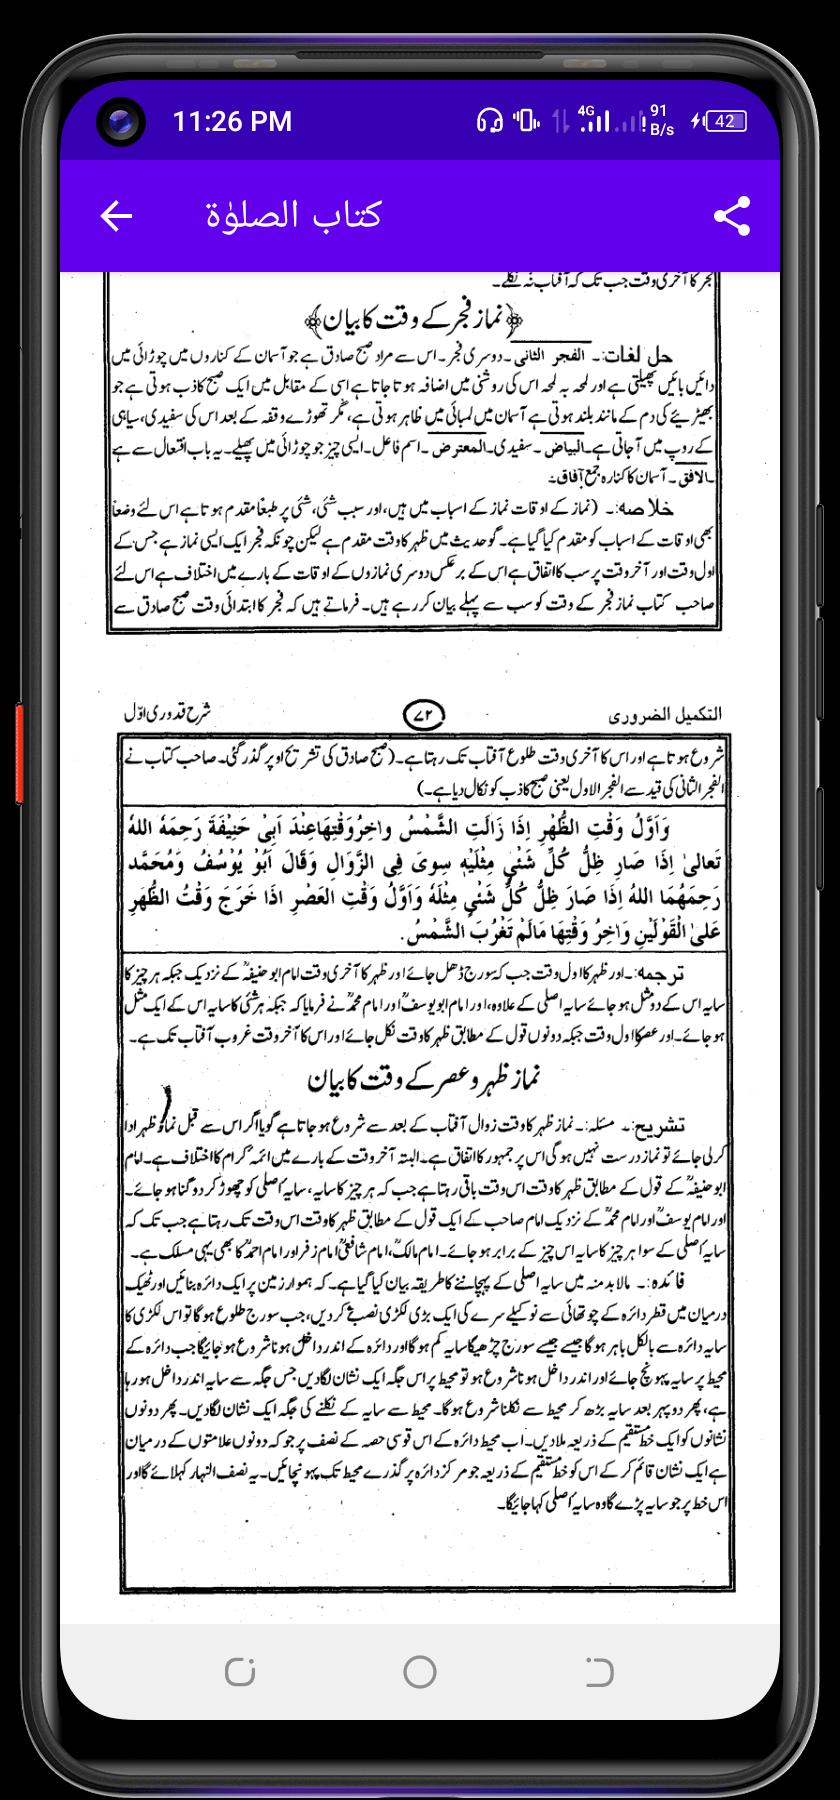 11:26 PM
4G
91 B/s
42
کتاب الصلوٰۃ
فجر کا آخری وقت جب تک کہ آفتاب نہ نکلے۔
﴿نماز فجر کے وقت کا بیان﴾
حل لغات:۔ الفجر الثانی ۔دوسری فجر۔ اس سے مراد صبح صادق ہے جو آسمان کے کناروں میں چوڑائی میں
دائیں بائیں پھیلتی ہے اور لمحہ بہ لمحہ اس کی روشنی میں اضافہ ہوتا جاتا ہے اسی کے مقابل میں ایک صبح کاذب ہوتی ہے جو
بھیڑیئے کی دم کے مانند بلند ہوتی ہے آسمان میں لمبائی میں ظاہر ہوتی ہے، مگر تھوڑے وقفہ کے بعد اس کی سفیدی، سیاہی
کے روپ میں آجاتی ہے۔البیاض ۔سفیدی۔المعترض ۔اسم فاعل۔ ایسی چیز جو چوڑائی میں پھیلے۔ یہ باب افتعال سے ہے
۔الافق ۔آسمان کا کنارہ جمع آفاق۔
خلاصہ:۔ (نماز کے اوقات نماز کے اسباب میں ہیں، اور سبب شئی، شئی پر طبعاً مقدم ہوتا ہے اس لئے وضعاً
بھی اوقات کے اسباب کو مقدم کیا گیا ہے۔ گو حدیث میں ظہر کا وقت مقدم ہے لیکن چونکہ فجر ایک ایسی نماز ہے جس کے
اول وقت اور آخر وقت پر سب کا اتفاق ہے اس کے برعکس دوسری نمازوں کے اوقات کے بارے میں اختلاف ہے اس لئے
صاحب کتاب نماز فجر کے وقت کو سب سے پہلے بیان کر رہے ہیں۔ فرماتے ہیں کہ فجر کا ابتدائی وقت صبح صادق سے
التکمیل الضروری ۷۲ شرح قدوری اوّل
شروع ہوتا ہے اور اس کا آخری وقت طلوع آفتاب تک رہتا ہے۔ (صبح صادق کی تشریح اوپر گذر گئی۔ صاحب کتاب نے
الفجر الثانی کی قید سے الفجر الاول یعنی صبح کاذب کو نکال دیا ہے۔)
وَاَوَّلُ وَقْتِ الظُّهْرِ اِذَا زَالَتِ الشَّمْسُ واٰخِرُوَقْتِهَاعِنْدَ اَبِیْ حَنِیْفَةَ رَحِمَهُ اللهُ
تَعالیٰ اِذَا صَارِ ظِلُّ کُلِّ شَئْیٍ مِثْلَیْهِ سِویٰ فِی الزَّوَالِ وَقَالَ اَبُوْ یُوْسُفُ وَمُحَمَّد
رَحِمَهُمَا اللهُ اِذَا صَارَ ظِلُّ کُلُّ شَئْیٍ مِثْلَهُ وَاَوَّلُ وَقْتِ العَصْرِ اذَا خَرَجَ وَقْتُ الظُّهْرِ
عَلیٰ الْقَوْلَیْنِ وَاٰخِرُ وَقْتِهَا مَالَمْ تَغْرُبَ الشَّمْسُ.
ترجمہ:۔ اور ظہر کا اول وقت جب کہ سورج ڈھل جائے اور ظہر کا آخری وقت امام ابو حنیفہؒ کے نزدیک جبکہ ہر چیز کا
سایہ اس کے دو مثل ہو جائے سایہ اصلی کے علاوہ، اور امام ابو یوسفؒ اور امام محمدؒ نے فرمایا کہ جبکہ ہر شئی کا سایہ اس کے ایک مثل
ہو جائے۔ اور عصر کا اول وقت جبکہ دونوں قول کے مطابق ظہر کا وقت نکل جائے اور اس کا آخر وقت غروب آفتاب تک ہے۔
نماز ظہر و عصر کے وقت کا بیان
تشریح:۔ مسئلہ:۔ نماز ظہر کا وقت زوال آفتاب کے بعد سے شروع ہو جاتا ہے گویا اگر اس سے قبل نماز ظہر ادا
کرلی جائے تو نماز درست نہیں ہوگی اس پر جمہور کا اتفاق ہے۔ البتہ آخر وقت کے بارے میں ائمہ کرام کا اختلاف ہے۔ امام
ابو حنیفہؒ کے قول کے مطابق ظہر کا وقت اس وقت باقی رہتا ہے جب کہ ہر چیز کا سایہ، سایہ اصلی کو چھوڑ کر دوگنا ہو جائے۔
اور امام یوسفؒ اور امام محمدؒ کے نزدیک امام صاحب کے ایک قول کے مطابق ظہر کا وقت اس وقت تک رہتا ہے جب تک کہ
سایہ اصلی کے سوا ہر چیز کا سایہ اس چیز کے برابر ہو جائے۔ امام مالکؒ، امام شافعیؒ امام زفر اور امام احمدؒ کا بھی یہی مسلک ہے۔
فائدہ:۔ مالا بد منہ میں سایہ اصلی کے پہچاننے کا طریقہ بیان کیا گیا ہے۔ کہ ہموار زمین پر ایک دائرہ بنائیں اور ٹھیک
درمیان میں قطر دائرہ کے چوتھائی سے نوکیلے سرے کی ایک بڑی لکڑی نصب کر دیں، جب سورج طلوع ہوگا تو اس لکڑی کا
سایہ دائرہ سے بالکل باہر ہوگا جیسے جیسے سورج چڑھیگا سایہ کم ہوگا اور دائرہ کے اندر داخل ہونا شروع ہو جائیگا جب دائرہ کے
محیط پر سایہ پہونچ جائے اور اندر داخل ہونا شروع ہو تو محیط پر اس جگہ ایک نشان لگادیں جس جگہ سے سایہ اندر داخل ہو رہا
ہے، پھر دو پہر بعد سایہ بڑھ کر محیط سے نکلنا شروع ہوگا۔ محیط سے سایہ کے نکلنے کی جگہ ایک نشان لگادیں۔ پھر دونوں
نشانوں کو ایک خط مستقیم کے ذریعہ ملادیں۔ اب محیط دائرہ کے اس قوسی حصہ کے نصف پر جو کہ دونوں علامتوں کے درمیان
ہے ایک نشان قائم کر کے اس کو خط مستقیم کے ذریعہ جو مرکز دائرہ پر گذرے محیط تک پہونچائیں۔ یہ نصف النہار کہلائے گا اور
اس خط پر جو سایہ پڑے گا وہ سایہ اصلی کہا جائیگا۔